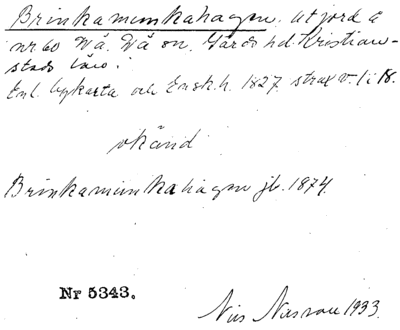 Brinkamunkahagen. utjord å
nr 60 Vä. Vä sn. Gärds hd. Kristian-
stads län.
Enl. bykarta och Ensk. h. 1827. strax v. i 18.
okänd
Brinkamunkahagen jb. 1874.
Nr 5343.
1933.